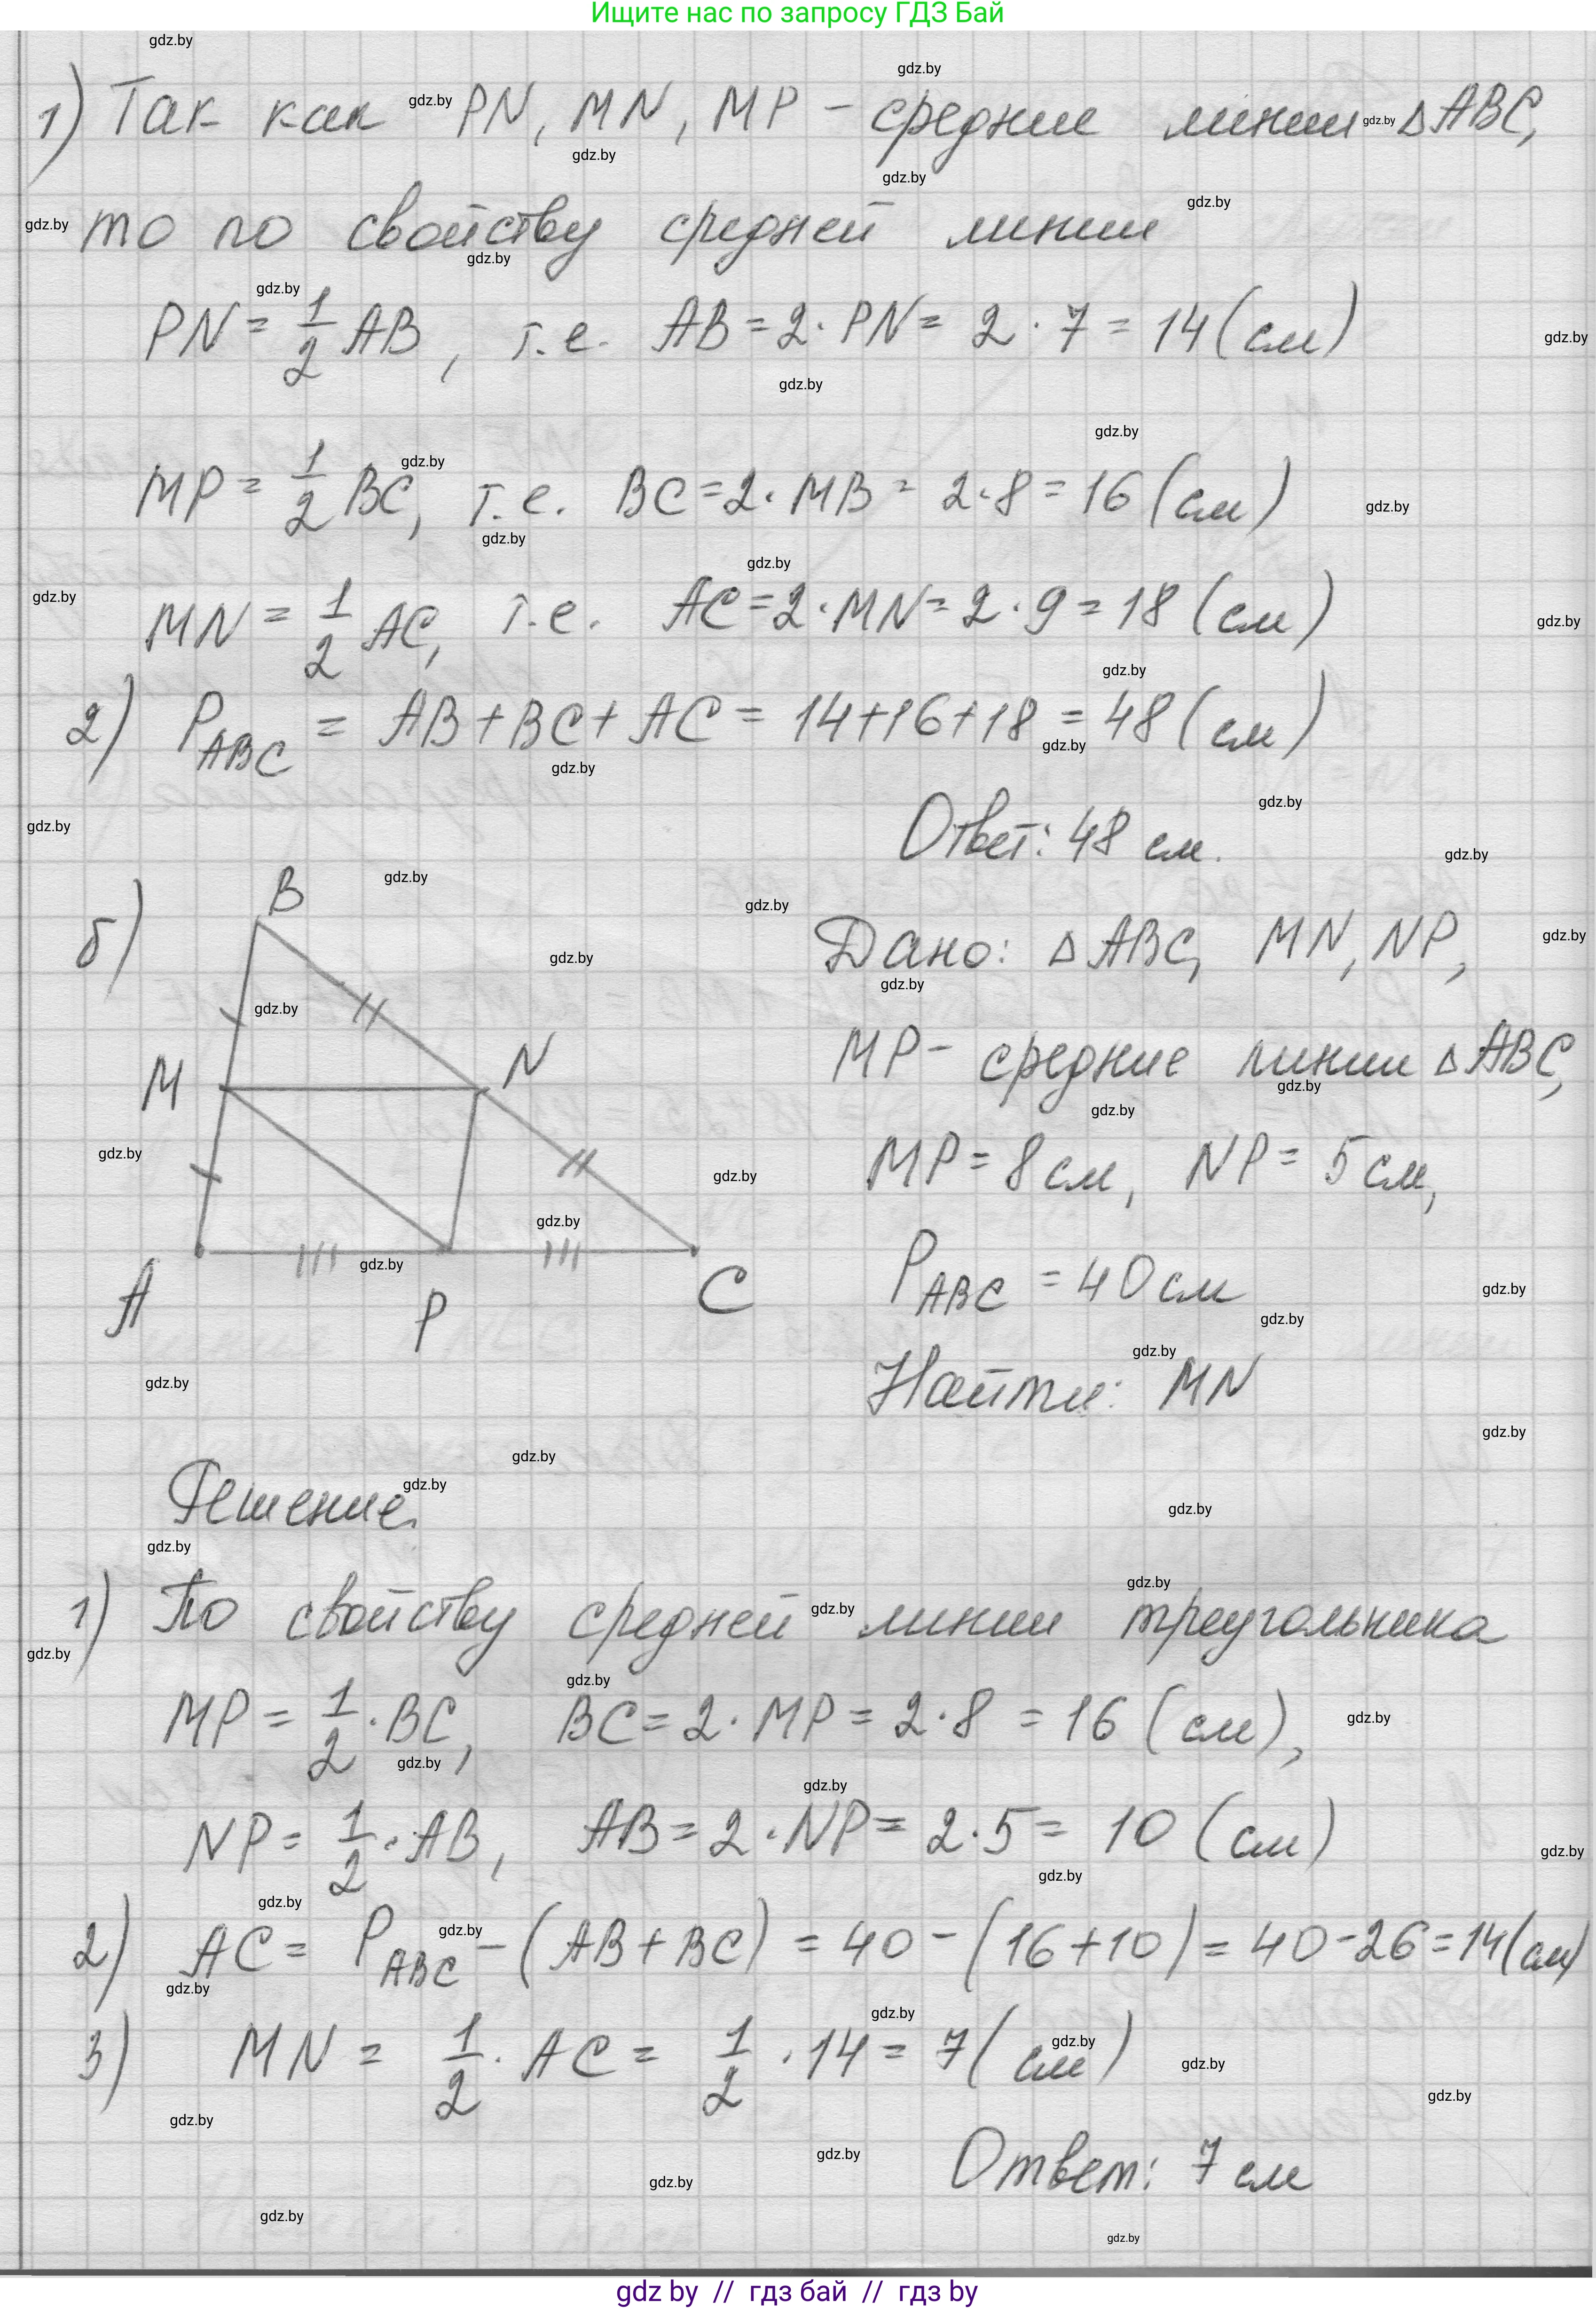 Ищите нас по запросу ГДЗ Бай
1) Так как PN, MN, MP - средние линии △ABC,
то по свойству средней линии
PN = 1/2 AB, т.е. AB = 2 · PN = 2 · 7 = 14 (см)
MP = 1/2 BC, т.е. BC = 2 · MB = 2 · 8 = 16 (см)
MN = 1/2 AC, т.е. AC = 2 · MN = 2 · 9 = 18 (см)
2) P_ABC = AB + BC + AC = 14 + 16 + 18 = 48 (см)
Ответ: 48 см.
б)
B
M
N
A
P
C
Дано: △ABC, MN, NP,
MP - средние линии △ABC,
MP = 8 см, NP = 5 см,
P_ABC = 40 см
Найти: MN
Решение.
1) По свойству средней линии треугольника
MP = 1/2 · BC, BC = 2 · MP = 2 · 8 = 16 (см),
NP = 1/2 · AB, AB = 2 · NP = 2 · 5 = 10 (см)
2) AC = P_ABC - (AB + BC) = 40 - (16 + 10) = 40 - 26 = 14 (см)
3) MN = 1/2 · AC = 1/2 · 14 = 7 (см)
Ответ: 7 см
gdz by // гдз бай // гдз by